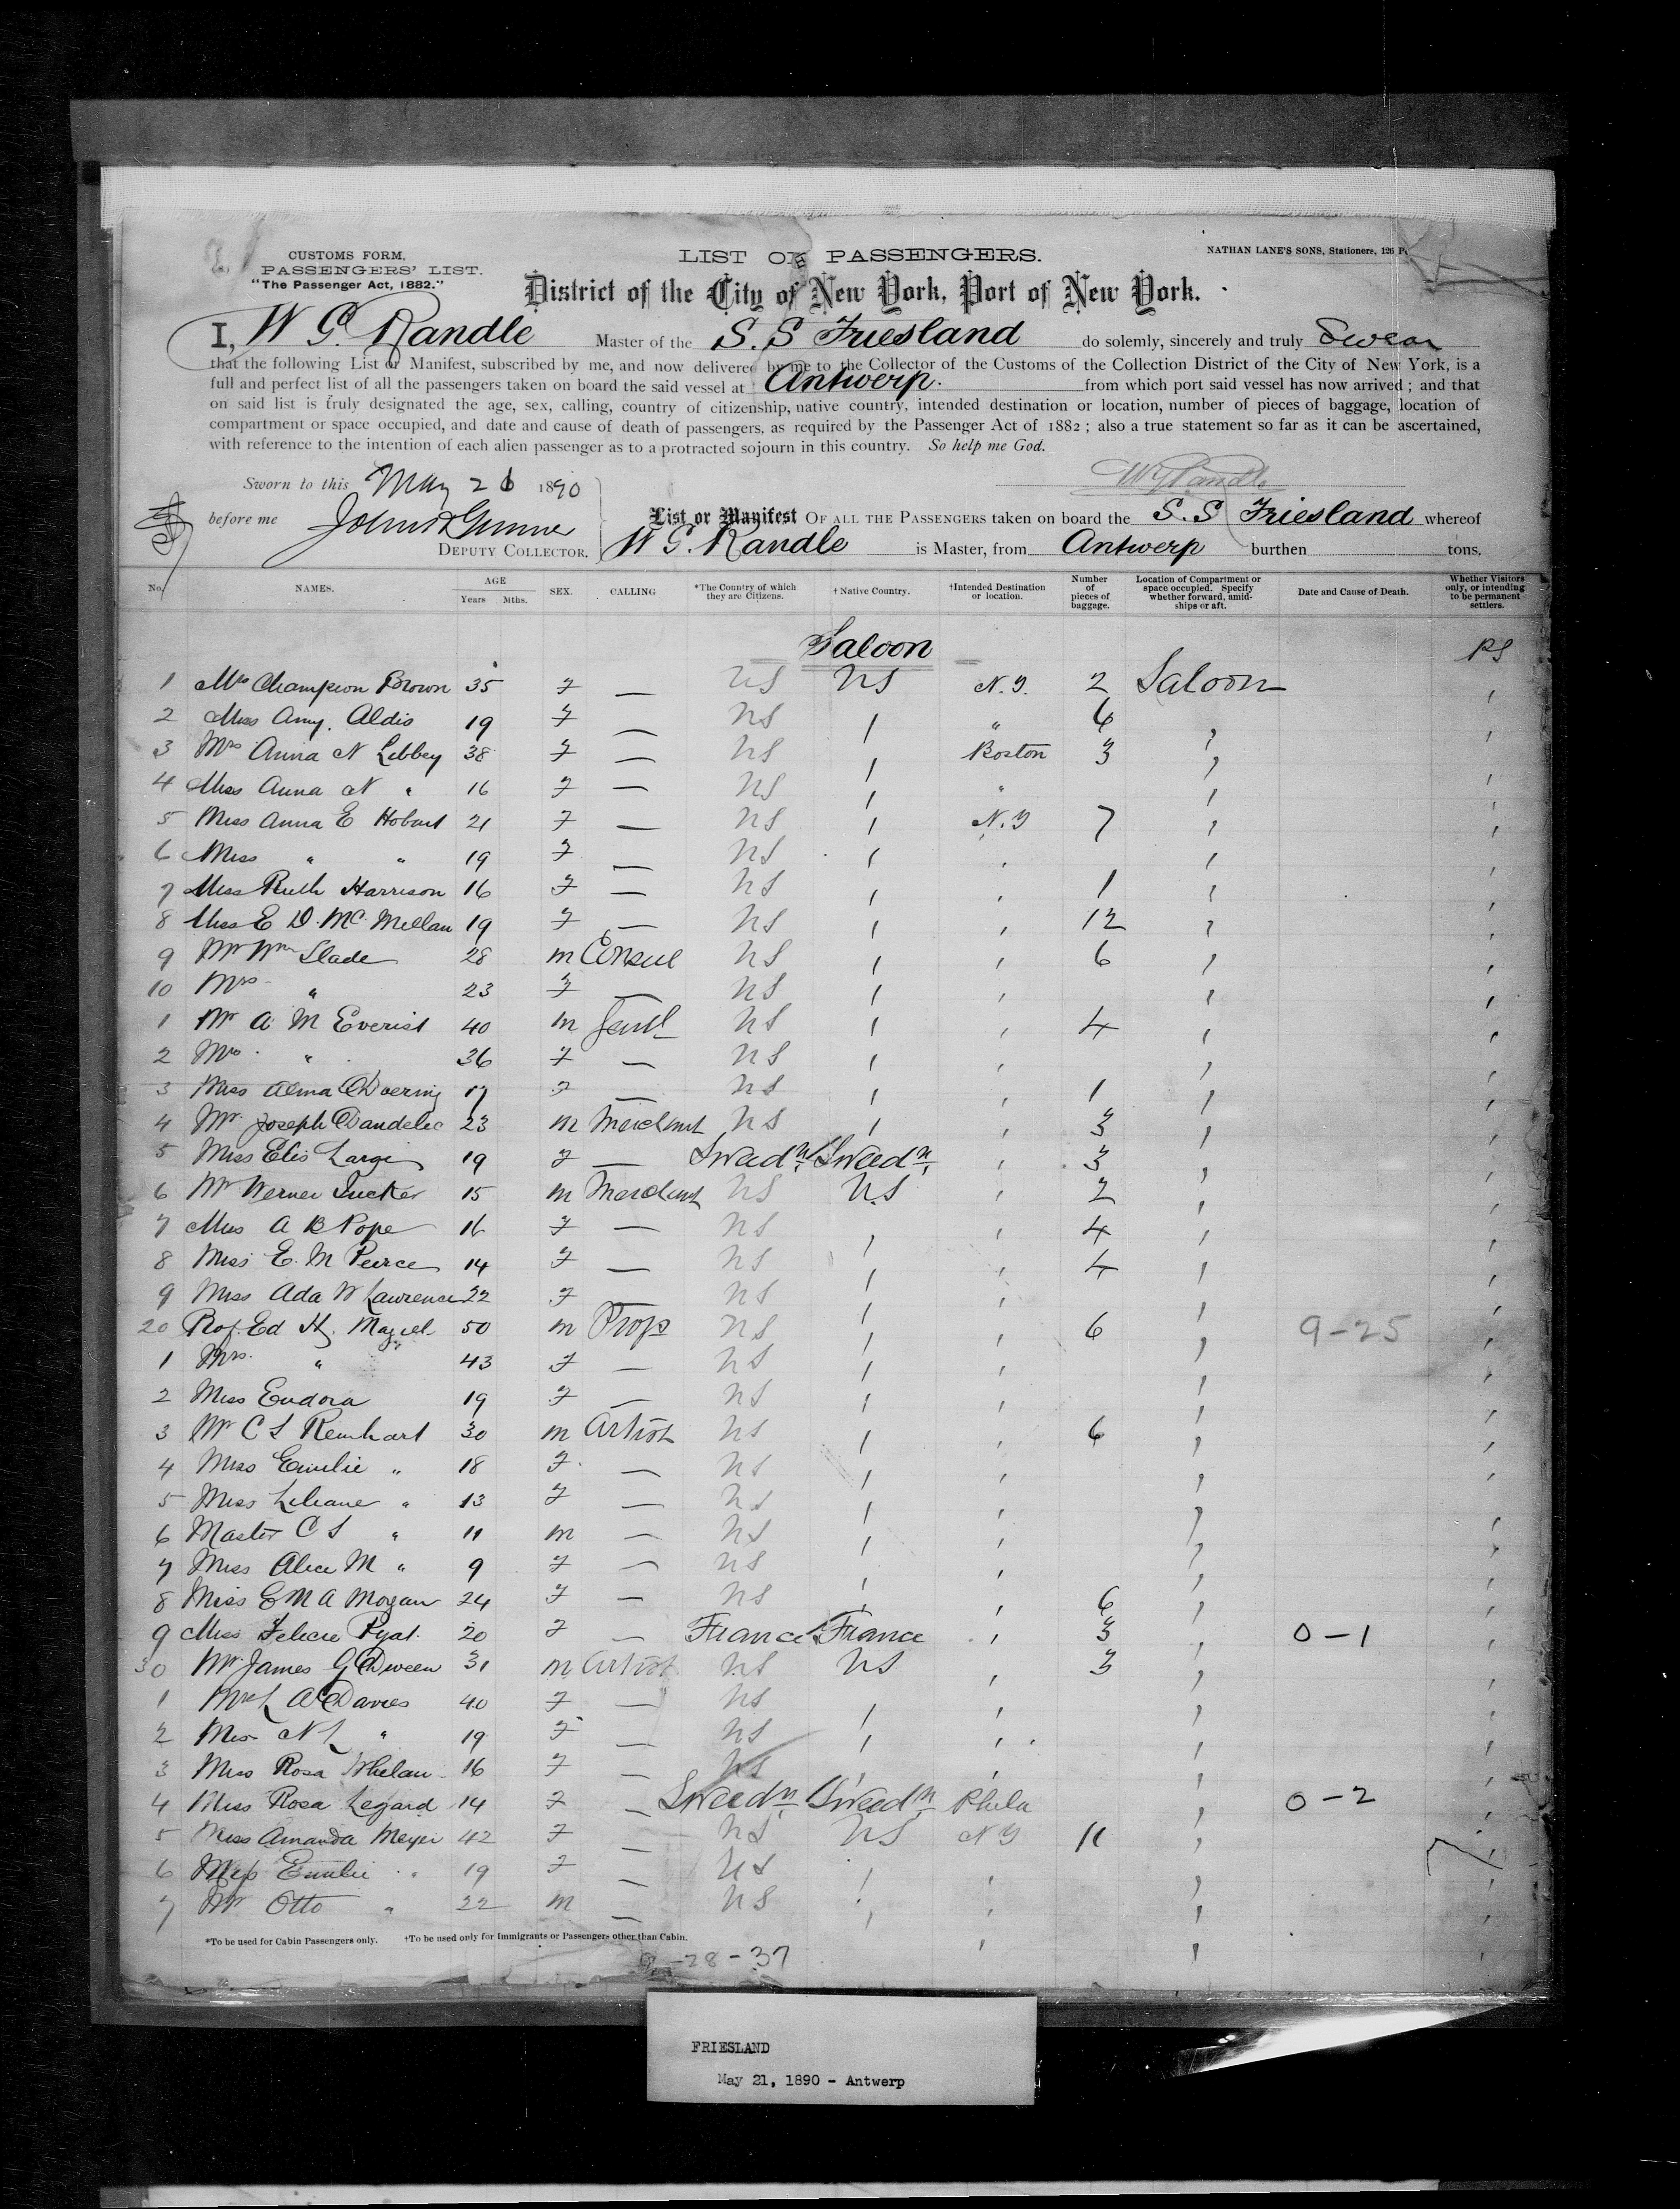 CUSTOMS FORM,
PASSENGERS' LIST.
"The Passenger Act, 1882."
LIST OF PASSENGERS.
NATHAN LANE'S SONS, Stationers, 126
District of the City of New York, Port of New York.
I, W G. Randle Master of the S. S Friesland do solemnly, sincerely and truly Swear
that the following List or Manifest, subscribed by me, and now delivered by me to the Collector of the Customs of the Collection District of the City of New York, is a
full and perfect list of all the passengers taken on board the said vessel at Antwerp. from which port said vessel has now arrived ; and that
on said list is truly designated the age, sex, calling, country of citizenship, native country, intended destination or location, number of pieces of baggage, location of
compartment or space occupied, and date and cause of death of passengers, as required by the Passenger Act of 1882 ; also a true statement so far as it can be ascertained,
with reference to the intention of each alien passenger as to a protracted sojourn in this country. So help me God.
Sworn to this May 21 1890
W G Randle
before me
DEPUTY COLLECTOR.
List or Manifest OF ALL THE PASSENGERS taken on board the S. S Friesland whereof
W G. Randle is Master, from Antwerp burthen tons.
No. NAMES. AGE Years Mths. SEX. CALLING *The Country of which they are Citizens. †Native Country. †Intended Destination or location. Number of pieces of baggage. Location of Compartment or space occupied. Specify whether forward, amidships or aft. Date and Cause of Death. Whether Visitors only, or intending to be permanent settlers.
Saloon PS
1 Mrs Champion Brown 35 F — US US N.Y. 2 Saloon
2 Miss Amy Aldis 19 F — US " 6
3 Mrs Anna N Libbey 38 F — US Boston 3
4 Miss Anna N " 16 F — US "
5 Miss Anna E Hobart 21 F — US N.Y 7
6 Miss " " 19 F — US
7 Miss Ruth Harrison 16 F — US 1
8 Miss E D. Mc Millan 19 F — US 12
9 Mr Wm Slade 28 m Consul US 6
10 Mrs " 23 F — US
1 Mr A M Everist 40 m Gentl US 4
2 Mrs " 36 F — US
3 Miss Alma Doering 17 F — US 1
4 Mr Joseph 23 m Merchant US 3
5 Miss Elis 19 F — Swedn Swedn 3
6 Mr Werner 15 m Merchant US US 2
7 Miss A B Pope 16 F — US 4
8 Miss E. M Peirce 14 F — US 4
9 Miss Ada W Lawrence 22 F — US
20 Prof. Ed H. 50 m US 6 9-25
1 Mrs. " 43 F — US
2 Miss Eudora 19 F — US
3 Mr C S Reinhart 30 m Artist US 6
4 Miss Emilie " 18 F — US
5 Miss Liliane " 13 F — US
6 Master C S " 11 m — US
7 Miss Alice M " 9 F — US
8 Miss E M A Mogan 24 F — US 6
9 Miss Felicie Pyat. 20 F — France France 3 0-1
30 Mr James G 31 m Artist US US 3
1 Mrs L A Davies 40 F — US
2 Miss N L " 19 F — US
3 Miss Rosa Whelan 16 F — US
4 Miss Rosa Legard 14 F — Swedn Swedn Phila 0-2
5 Miss Amanda Meyer 42 F — US US NY 11
6 Miss Emilie " 19 F — US
7 Mr Otto " 22 m — US
*To be used for Cabin Passengers only. †To be used only for Immigrants or Passengers other than Cabin.
-28-37
FRIESLAND
May 21, 1890 - Antwerp